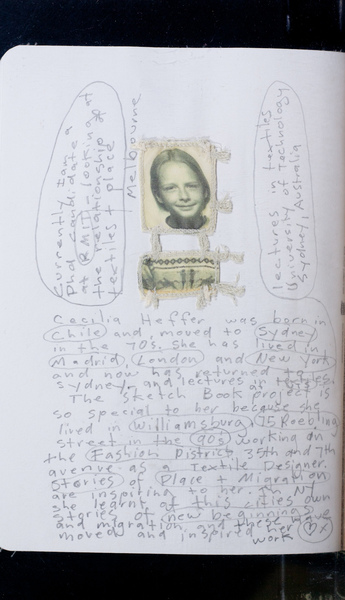 Currently I am a
PhD candidate a
at RMIT - looking at
the relationship of
textiles + place
Melbourne
lectures in textiles
University of Technology
Sydney, Australia
Cecilia Heffer was born in
Chile and moved to Sydney
in the 70s. She has lived in
Madrid, London and New York
and now has returned to
Sydney, and lectures in
The Sketch Book project is
so special to her because she
lived in Williamsburg 75 Roebling
street in the 90s working on
the Fashion District 35th and 7th
avenue as a Textile Designer.
Stories of Place + Migration
are inspiring to her. In NY
she learnt of this cities own
stories of new beginnings
and migration and these have
moved and inspired her
work